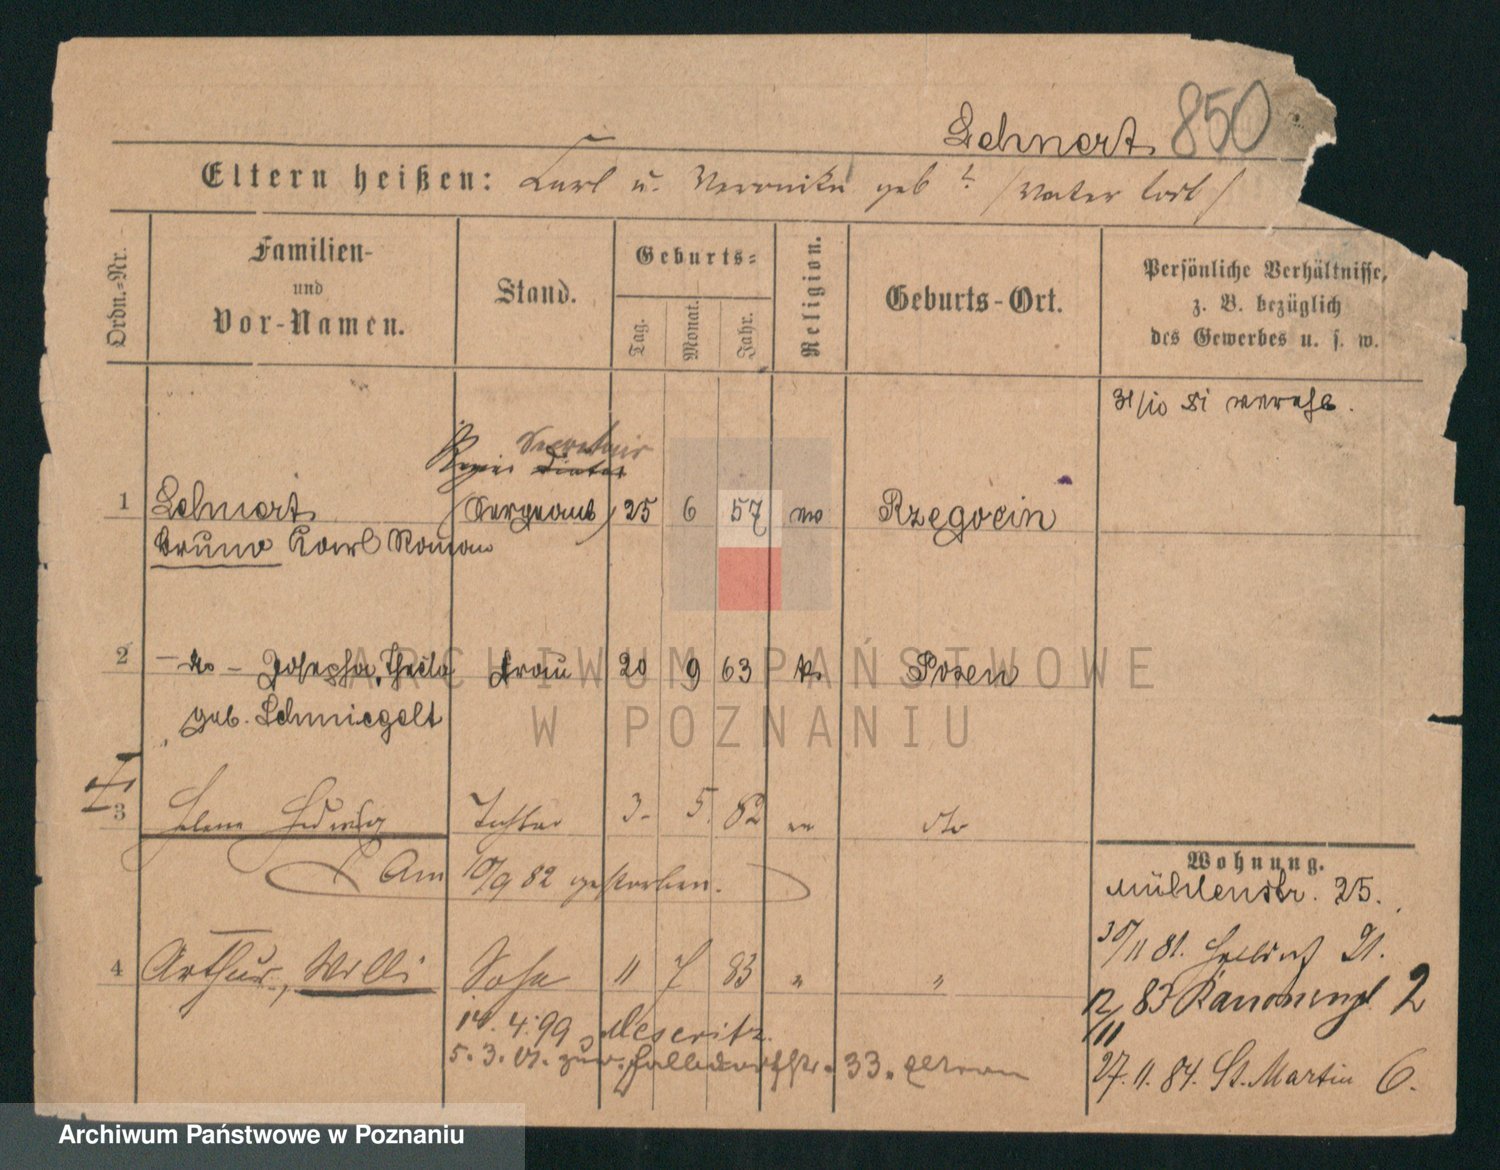 Lehnert 850
Eltern heißen: Karl u. Veronika geb. /Vater todt/
Ordn.-Nr.
Familien-
und
Vor-Namen.
Stand.
Geburts-
Tag.
Monat.
Jahr.
Religion.
Geburts-Ort.
Persönliche Verhältnisse,
z. B. bezüglich
des Gewerbes u. s. w.
31/10 81 verehl.
Secretair
1 Lehnert (Sergeant) 25 6 57 Rzegocin
Bruno Karl Roman
2 - do - Josepha, Thecla Frau 20 9 63 k. Posen
geb. Schmiegelt
3 Helene Hedwig Tochter 3. 5. 82 do
Am 10/9 82 gestorben.
Wohnung.
Mühlenstr. 25.
30/11 81. 21.
4 Arthur, Willi Sohn 11 7 83 " "
12/11 83 Kanonenpl 2
14. 4. 99 Meseritz.
5. 3. 01. zur. Halldorfstr. 33. Eltern
27. 11. 84. St. Martin 6.
ARCHIWUM PAŃSTWOWE
W POZNANIU
Archiwum Państwowe w Poznaniu